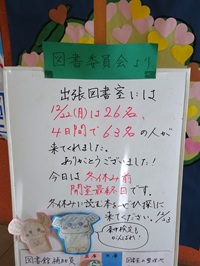 図書委員会より
出張図書室には
12/22(月)は26名、
4日間で63名の人が
来てくれました。
ありがとうございました!
今日は冬休み前
開室最終日です。
冬休みに読む本をぜひ探しに
来てください。12/23
図書館補助員